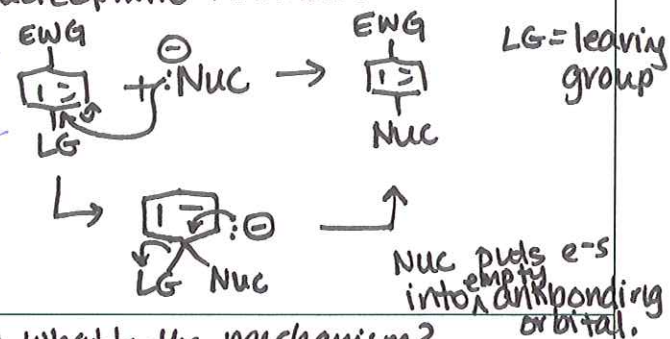 EWG
+ :Nuc →
⊖
LG
EWG
NUC
LG = leaving
group
:⊖
LG NUC
NUC puts e-s
into ^ empty antibonding
orbital.
What is the mechanism?